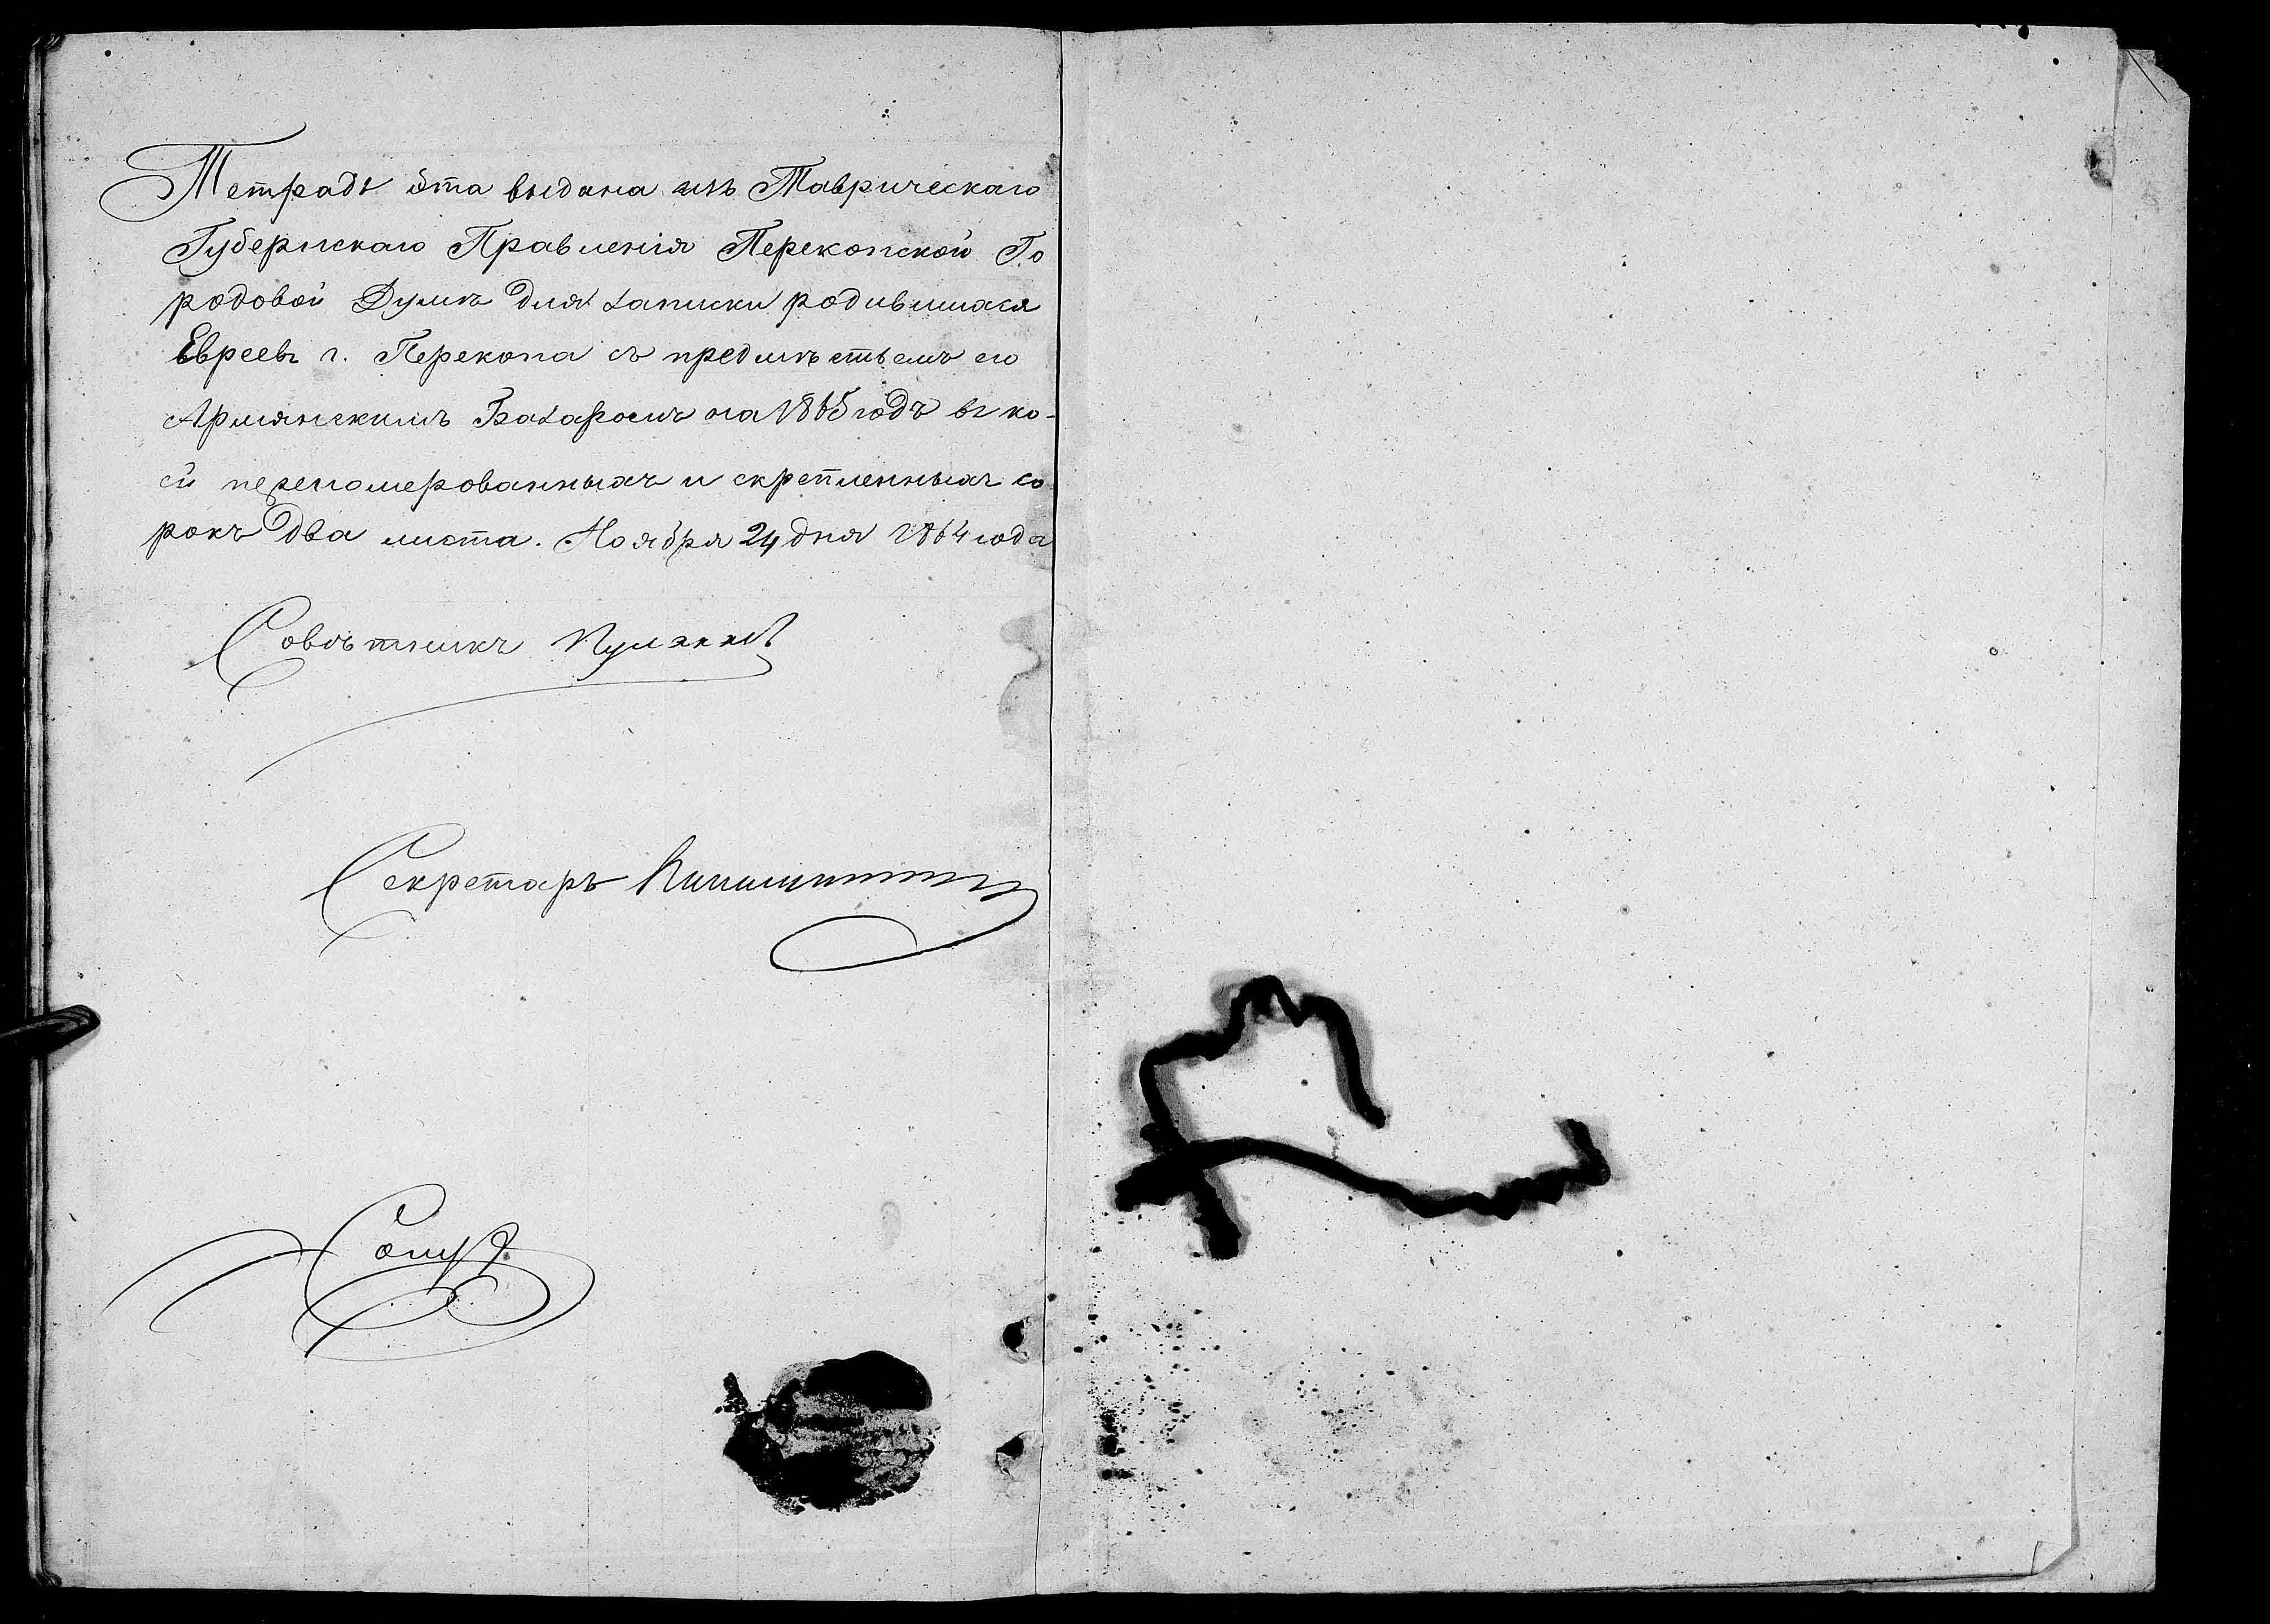 Тетрадь эта выдана изъ Таврическаго
Губернскаго Правленія Перекопской Го
родовой Думѣ для записки родившихся
Евреевъ г. Перекопа съ предмѣстьемъ его
Армянскимъ Базаромъ на 1865 годъ въ ко-
ей перенумерованныхъ и скрепленныхъ со
рокъ два листа. Ноября 24 дня 1864 года
Совѣтникъ
Секретарь